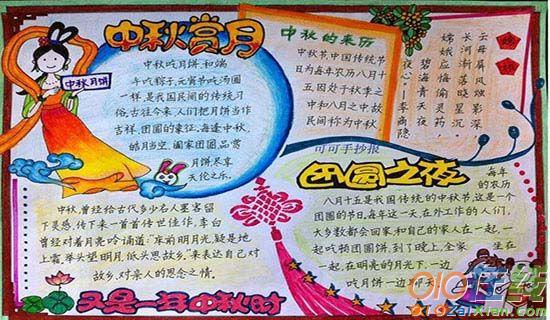 中秋赏月
中秋月饼
中秋吃月饼,和端
午吃粽子、元宵节吃汤圆
一样,是我国民间的传统习
俗。古往今来,人们把月饼当作
吉祥、团圆的象征,每逢中秋,
皓月当空,阖家团圆,品尝
月饼尽享
天伦之乐。
中秋的来历
中秋节,中国传统节
日,为每年农历八月十
五,因处于秋季之
中和八月之中,故
民间称为中秋
嫦娥
云母屏风烛影深
长河渐落晓星沉
嫦娥应悔偷灵药
碧海青天夜
夜心—李商隐
可可手抄报
团圆之夜
每年
的农历
八月十五是我国传统的中秋节,这是一个
团圆的节日,每年这一天,在外工作的人们,
大多数都会回家,和自己的家人在一起,一
起吃顿团圆饼,到了晚上,全家 坐在一
起,在明亮的月光下,一边
吃月饼一边聊天
中秋,曾经给古代多少名人墨客留
下灵感,传下来一首首传世佳作,李白
曾经对着月亮吟诵道:“床前明月光,疑是地
上霜,举头望明月,低头思故乡。”来表达自己对
故乡、对亲人的思念之情。
又是一年中秋时
xiGZaixian.com